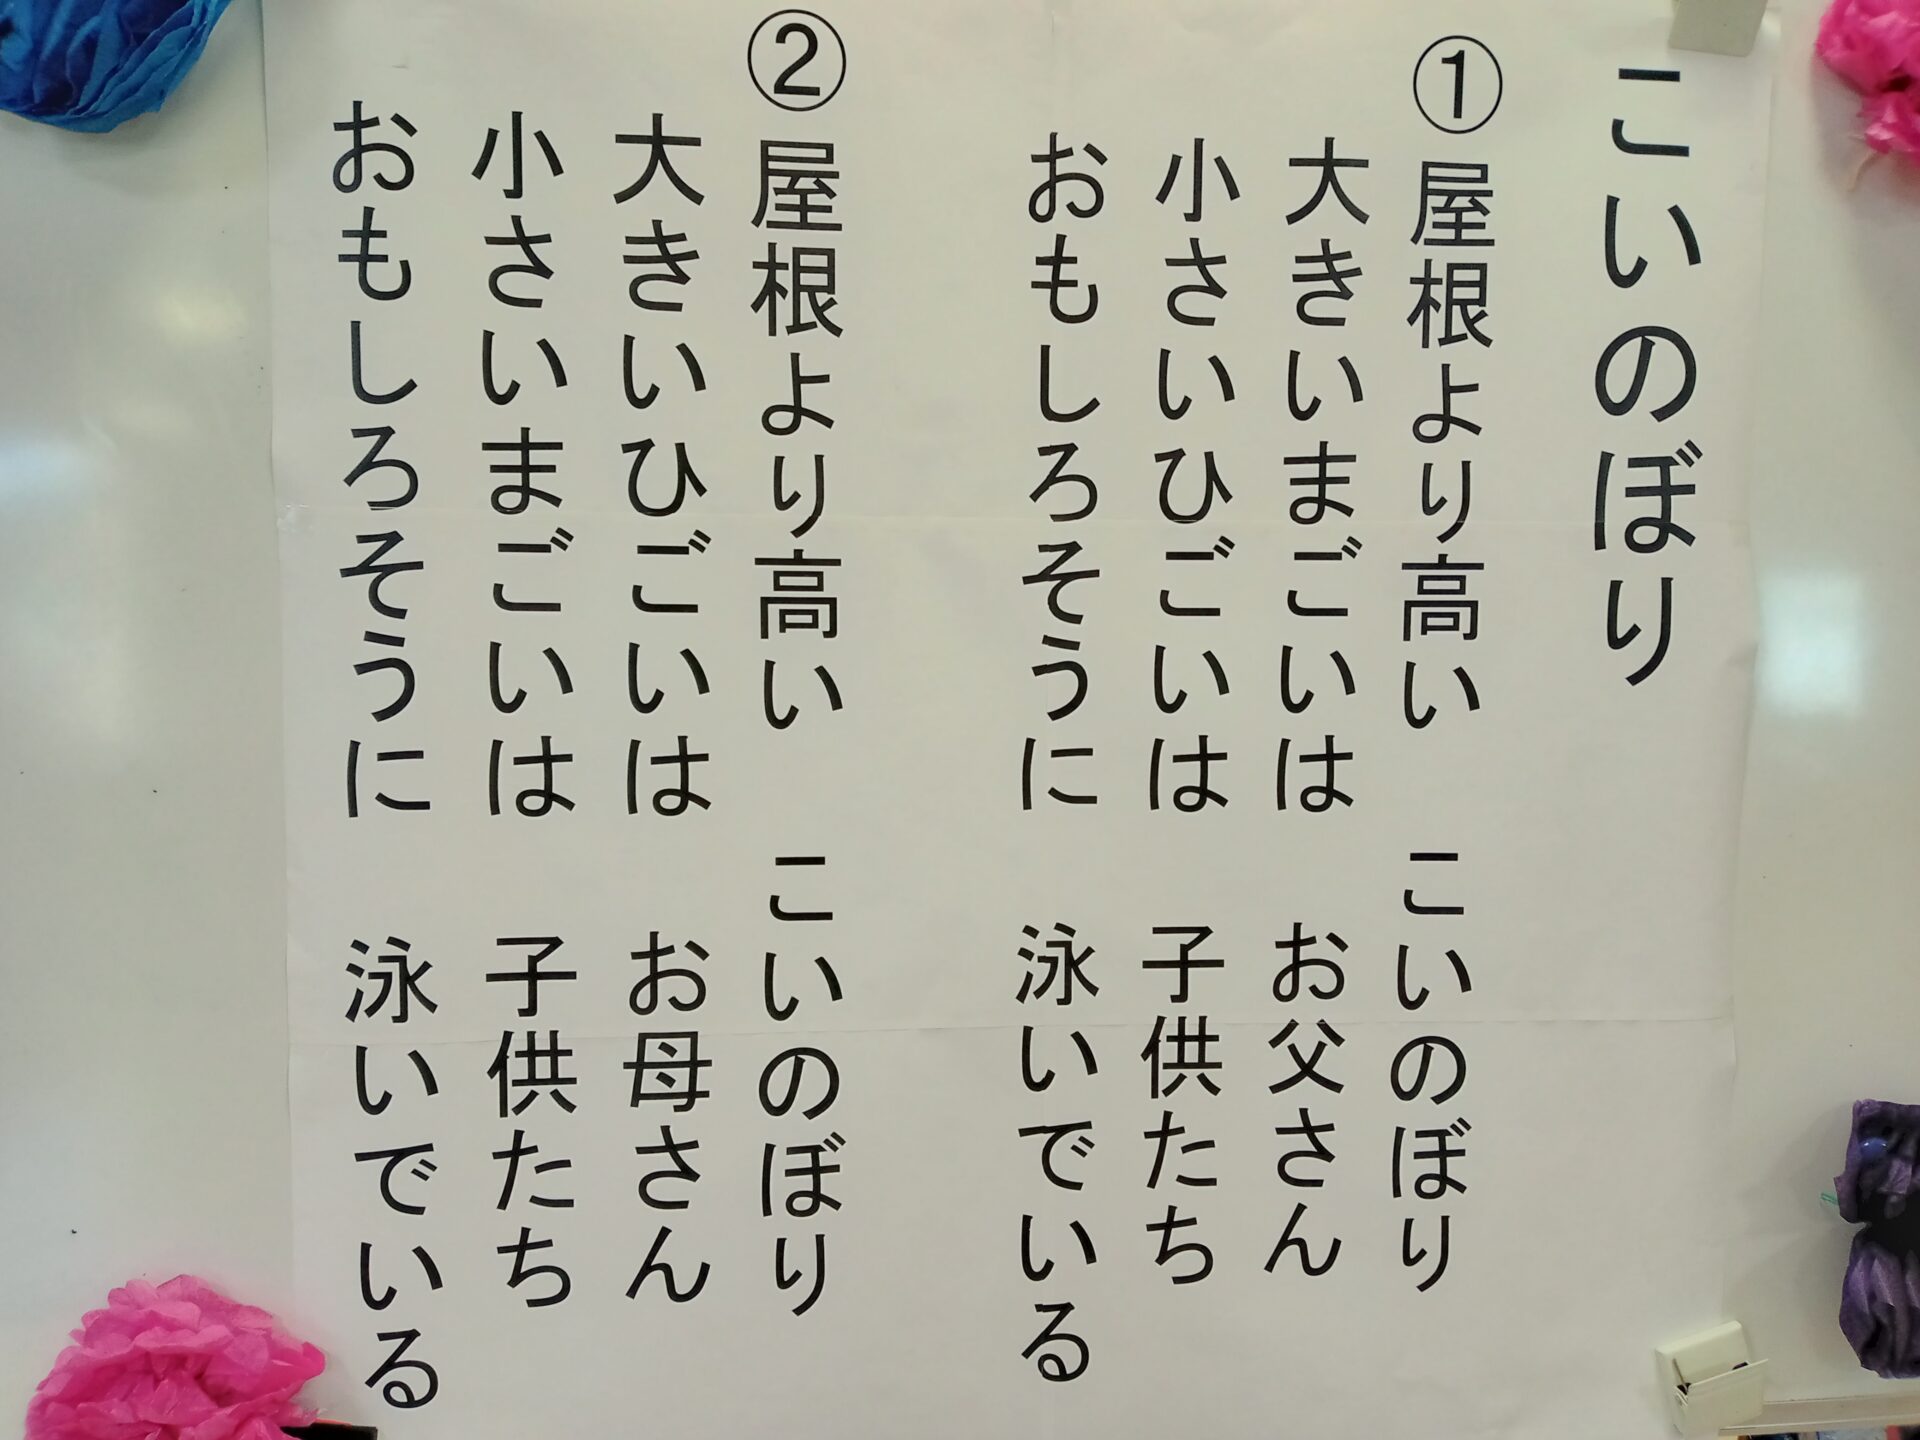 こいのぼり
①屋根より高い　こいのぼり
大きいまごいは　お父さん
小さいひごいは　子供たち
おもしろそうに　泳いでいる
②屋根より高い　こいのぼり
大きいひごいは　お母さん
小さいまごいは　子供たち
おもしろそうに　泳いでいる